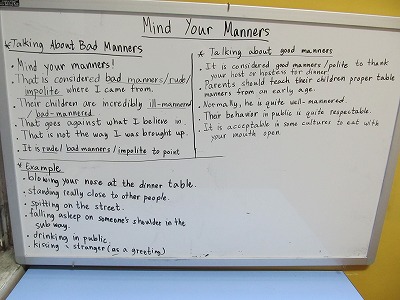 Mind Your Manners
*Talking About Bad Manners
• Mind your manners!
• That is considered bad manners/rude/
impolite where I came from.
• Their children are incredibly ill-mannered
/bad-mannered.
• That goes against what I believe in.
• That is not the way I was brought up.
• It is rude/bad manners/impolite to point
* Talking about good manners
• It is considered good manners/polite to thank
your host or hostess for dinner!
• Parents should teach their children proper table
manners from an early age.
• Normally, he is quite well-mannered.
• Their behavior in public is quite respectable.
• It is acceptable in some cultures to eat with
your mouth open.
* Example
• blowing your nose at the dinner table.
• standing really close to other people.
• spitting on the street.
• falling asleep on someone's shoulder in the
subway.
• drinking in public.
• kissing a stranger (as a greeting)